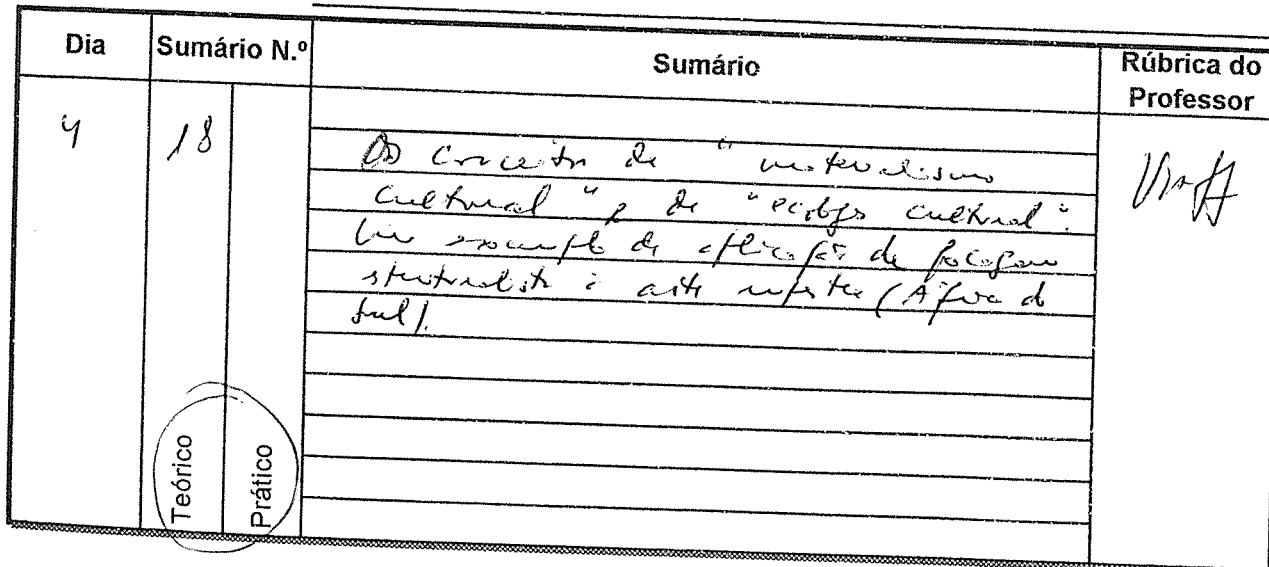 Dia Sumário N.º Sumário Rúbrica do Professor
4 18
Os conceitos de "materialismo
cultural" e de "ecologia cultural".
Um exemplo de aplicação de
estruturalista à arte rupestre (África do
Sul).
Teórico Prático